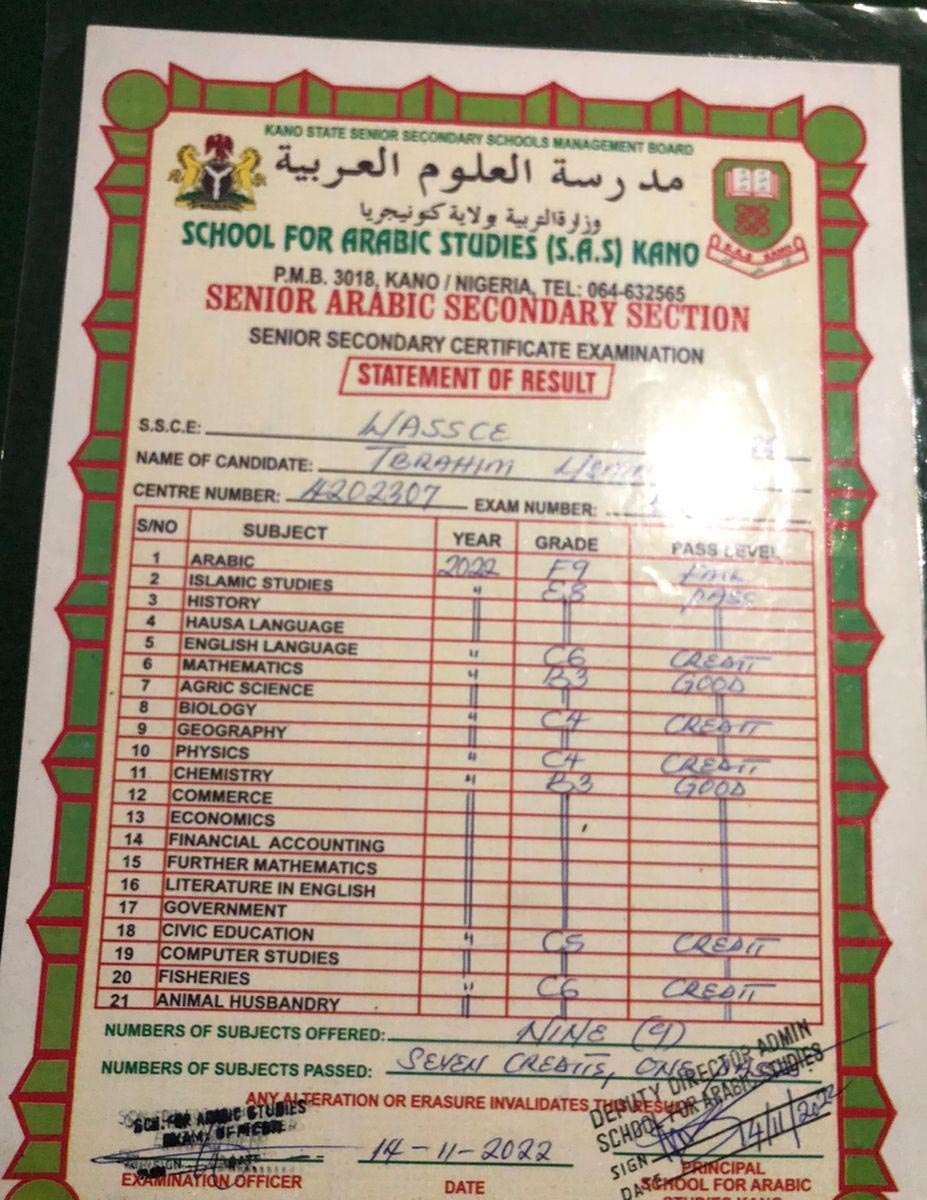 KANO STATE SENIOR SECONDARY SCHOOLS MANAGEMENT BOARD
مدرسة العلوم العربية
وزارة التربية بولاية كنو نيجريا
SCHOOL FOR ARABIC STUDIES (S.A.S) KANO
S.A.S KANO
P.M.B. 3018, KANO / NIGERIA, TEL: 064-632565
SENIOR ARABIC SECONDARY SECTION
SENIOR SECONDARY CERTIFICATE EXAMINATION
STATEMENT OF RESULT
S.S.C.E: WASSCE
NAME OF CANDIDATE: IBRAHIM
CENTRE NUMBER: 4202307 EXAM NUMBER:
S/NO SUBJECT YEAR GRADE PASS LEVEL
1 ARABIC 2022 F9 FAIL
2 ISLAMIC STUDIES " E8 PASS
3 HISTORY
4 HAUSA LANGUAGE
5 ENGLISH LANGUAGE " C6 CREDIT
6 MATHEMATICS " B3 GOOD
7 AGRIC SCIENCE
8 BIOLOGY " C4 CREDIT
9 GEOGRAPHY
10 PHYSICS " C4 CREDIT
11 CHEMISTRY " B3 GOOD
12 COMMERCE
13 ECONOMICS
14 FINANCIAL ACCOUNTING
15 FURTHER MATHEMATICS
16 LITERATURE IN ENGLISH
17 GOVERNMENT
18 CIVIC EDUCATION " C5 CREDIT
19 COMPUTER STUDIES
20 FISHERIES " C6 CREDIT
21 ANIMAL HUSBANDRY
NUMBERS OF SUBJECTS OFFERED: NINE (9)
NUMBERS OF SUBJECTS PASSED: SEVEN CREDITS, ONE PASS
ANY ALTERATION OR ERASURE INVALIDATES THIS RESULT
DEPUTY DIRECTOR ADMIN
SCHOOL FOR ARABIC STUDIES
SIGN 14/11/2022
DATE
SCH. FOR ARABIC STUDIES
EXAMS OFFICE
14-11-2022
EXAMINATION OFFICER DATE PRINCIPAL
SCHOOL FOR ARABIC
STUDIES KANO